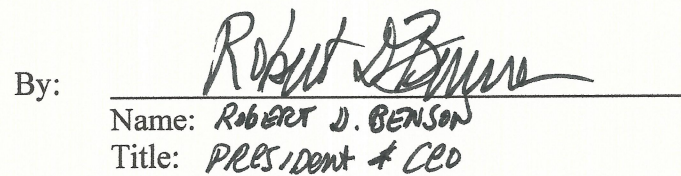 By: Robert D Benson
Name: ROBERT D. BENSON
Title: PRESIDENT & CEO